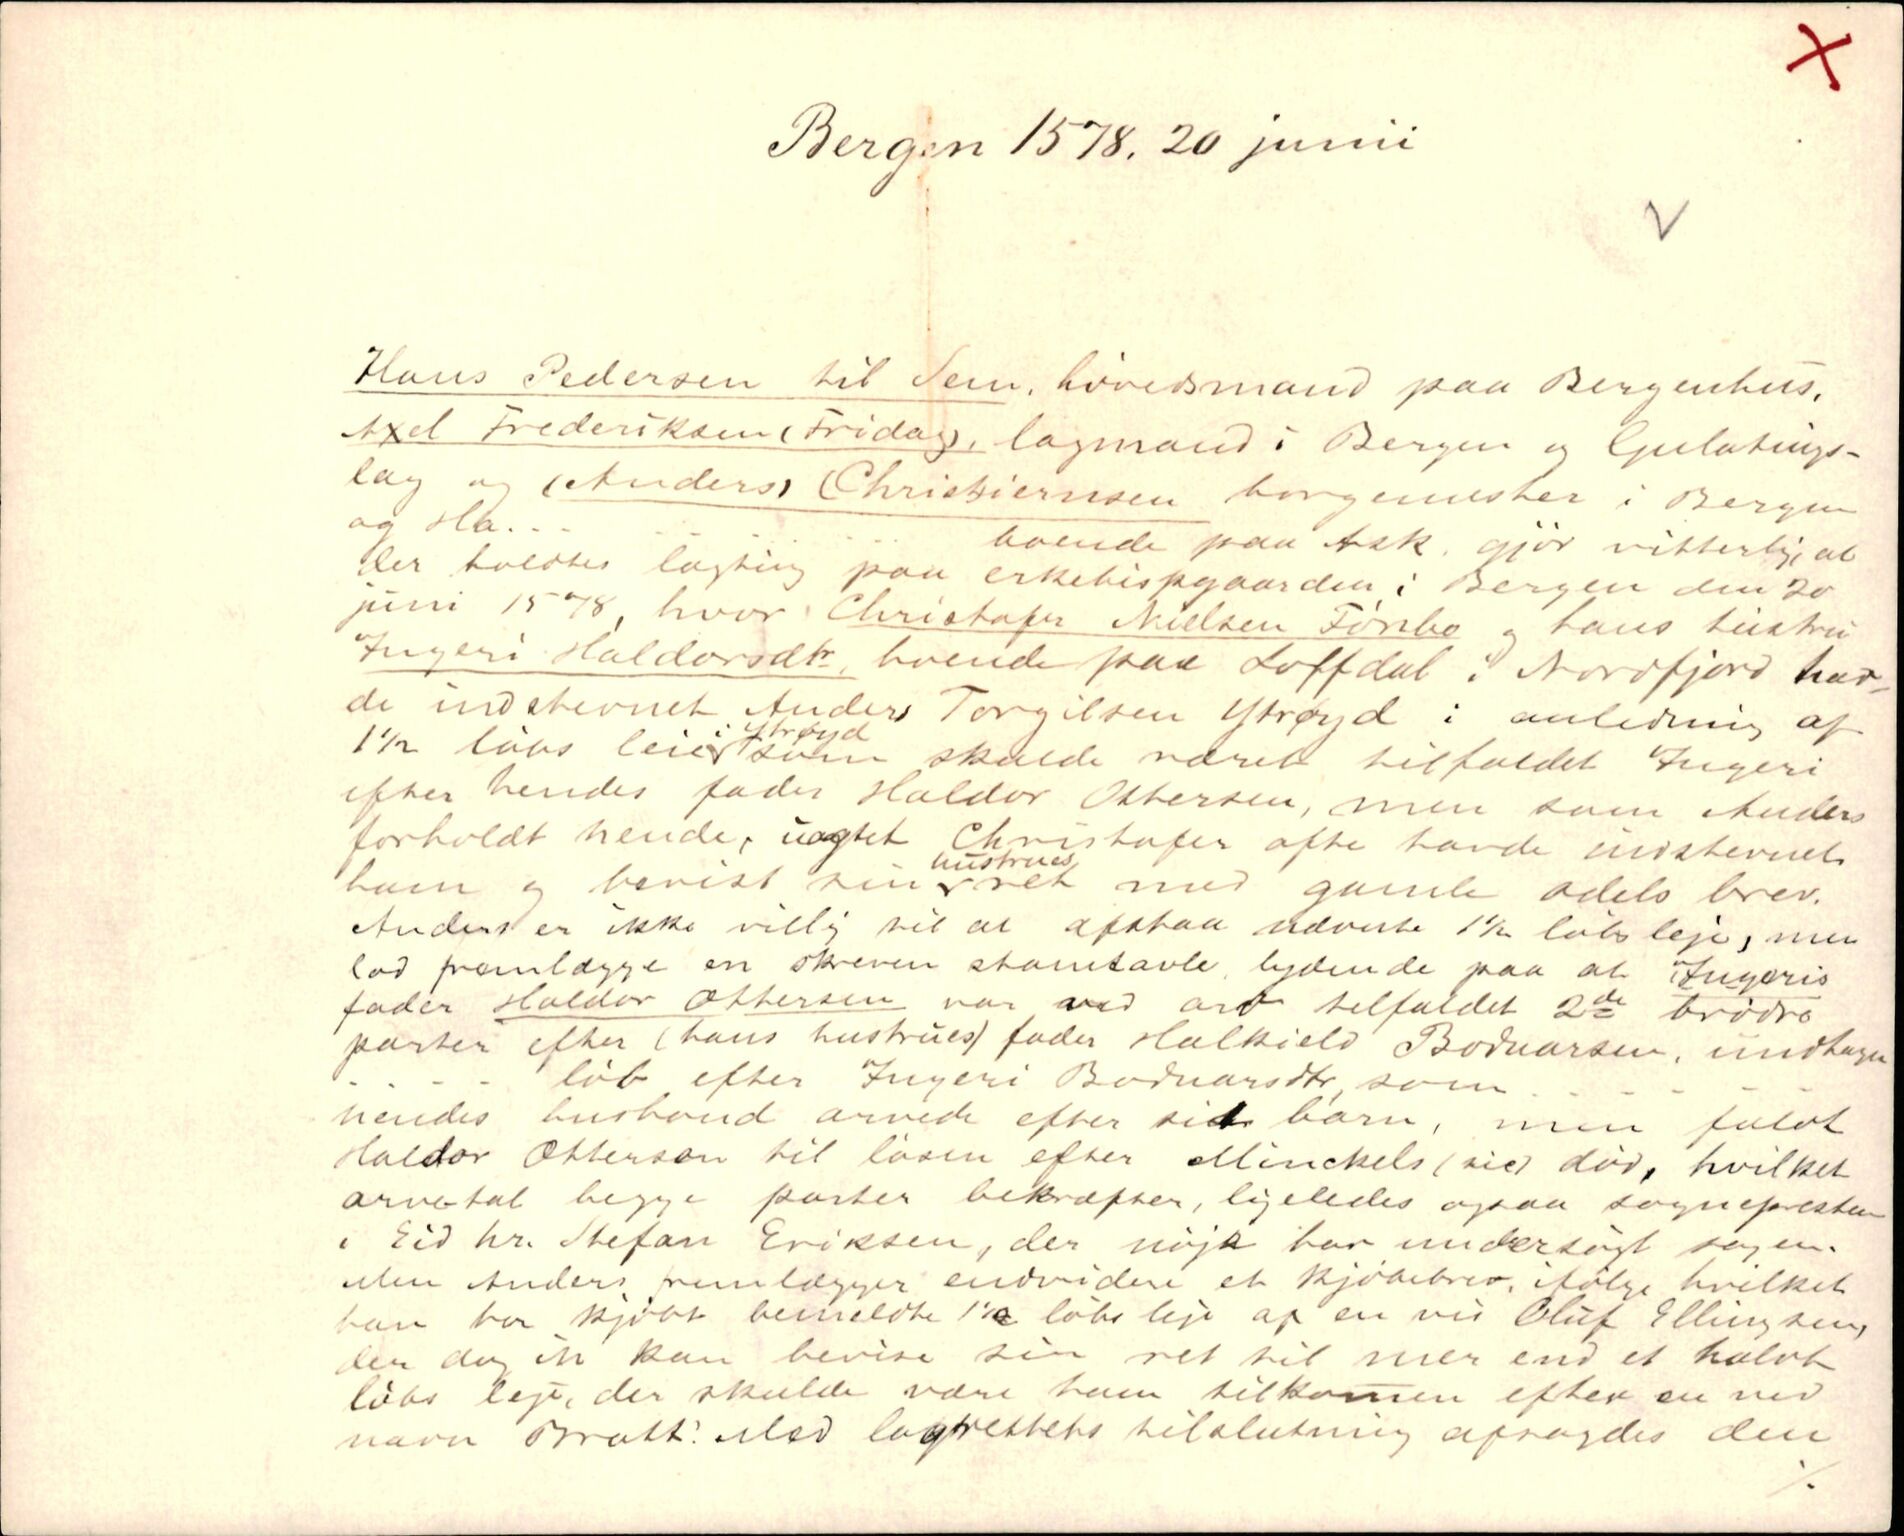 Bergen 1578. 20 junii
Hans Pedersen til Sem, hövedsmand paa Bergenhus,
Axel Frederiksen (Friday), lagmand i Bergen og Gulatings-
lag og (Anders) (Christiernsen borgemester i Bergen
og Ha... boende paa Ask, gjör vitterligt, at
der holdtes lagting paa erkebispgaarden i Bergen den 20
juni 1578, hvor Christofer Nielsen Fönbo og hans hustru
Ingeri Haldorsdtr, boende paa Loffdal i Nordfjord hav-
de indstevnet Anders Torgilsen Ytröyd i anledning af
1½ löbs leie i Ytröyd som skulde været tilfaldet Ingeri
efter hendes fader Haldor Ottersen, men som Anders
forholdt hende, uagtet Christofer ofte havde indstevnet
ham og bevist sin hustrues ret med gamle odels brev.
Anders er ikke villig til at afstaa nævnte 1½ löbs leje, men
lod fremlægge en skreven stamtavle, lydende paa at Ingeris
fader Haldor Ottersen var ved arv tilfaldet 2de brödre
parter efter (hans hustrues) fader Halkield Bodvarsen, undtagen
- - - - - löb efter Ingeri Bodvarsdtr, som - - - -
hendes husbond arvede efter sit barn, men faldt
Haldor Ottersen til lösen efter Minckels (sic) död, hvilket
arvetal begge parter bekræfter, ligeledes ogsaa sognepresten
i Eid hr. Stefan Eriksen, der nöje har undersögt sagen.
Men Anders fremlægger endvidere et kjöbebrev, ifölge hvilket
han har kjöbt bemeldte 1½ löbs leje af en vis Oluf Ellingsen,
der dog ik kan bevise sin ret til mer end et halvt
löbs leje, der skulde være ham tilkommen efter en ved
navn Bratt. Med lagrettets tilslutning afsagdes den
./.